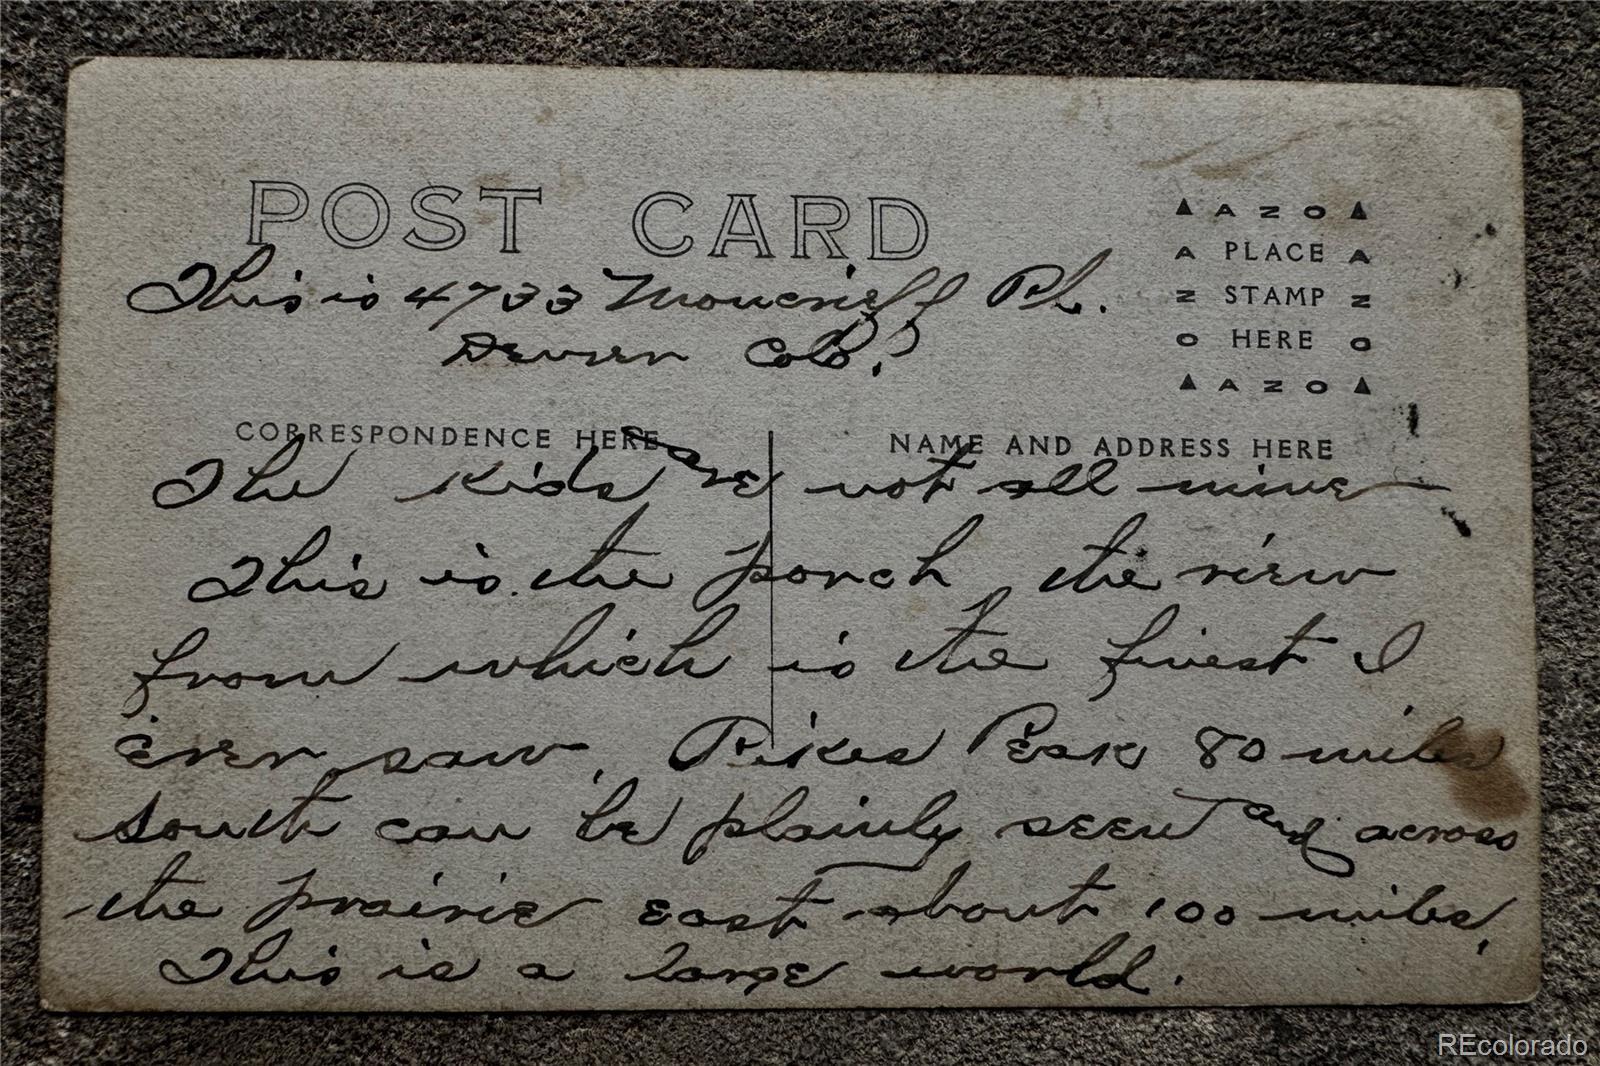 POST CARD
▲ A Z O ▲
A PLACE A
Z STAMP Z
O HERE O
▲ A Z O ▲
This is 4733 Moncrieff Pl.
Denver Colo.
CORRESPONDENCE HERE
NAME AND ADDRESS HERE
The kids are not all mine
This is the porch, the view
from which is the finest I
ever saw. Pikes Peak 80 miles
south can be plainly seen and across
the prairie east about 100 miles.
This is a large world.
REcolorado